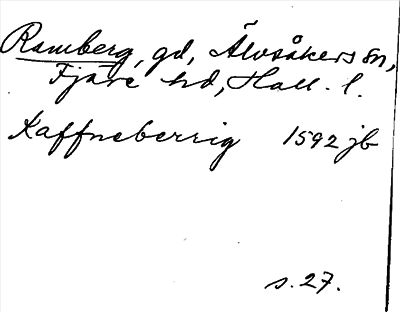 Ramberg, gd, Älvsåkers sn,
Fjäre hd, Hall. l.
Kaffneberrig 1592 jb
s. 27.